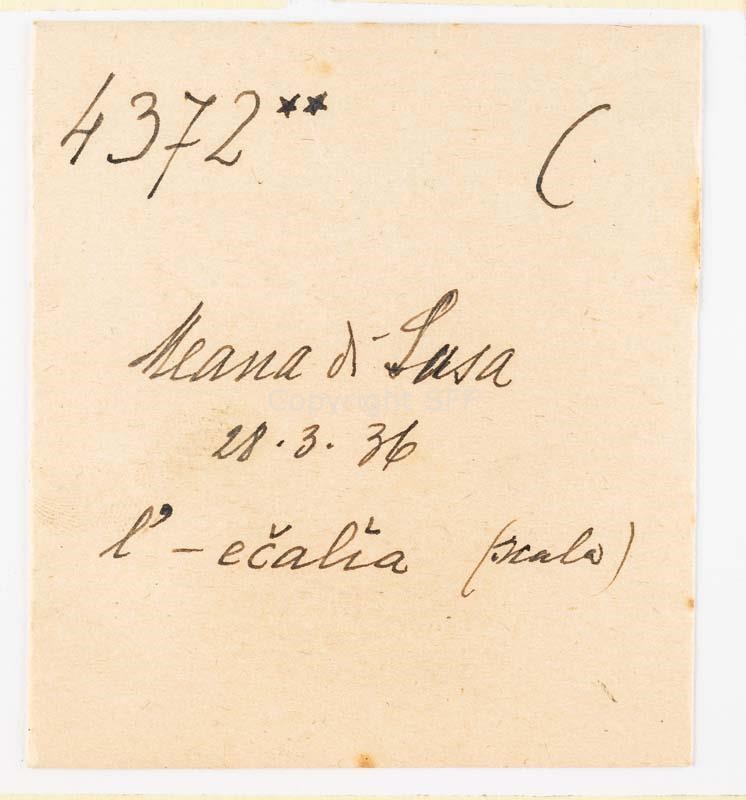 4372** (
Meana di Susa
Copyright SFF
28.3.36
l' - ečalía (scala)